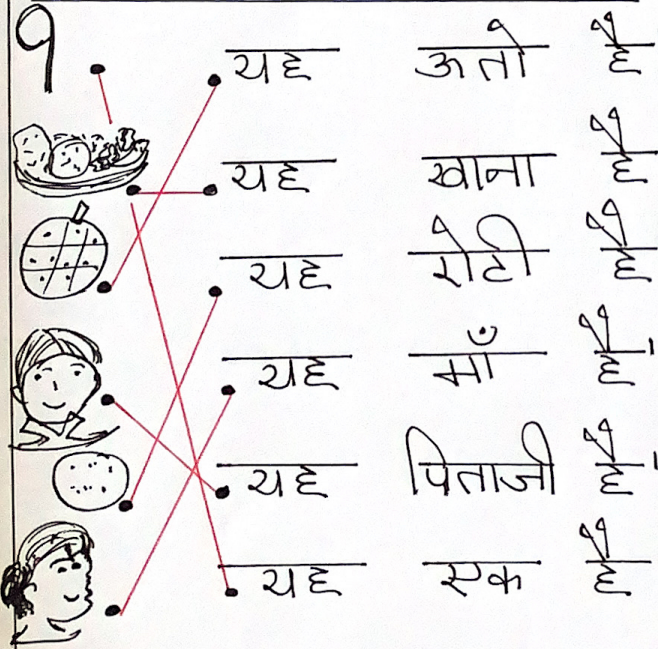 १
यह ऊतो है
यह खाना है
यह रोटी है
यह माँ है
यह पिताजी है
यह एक है